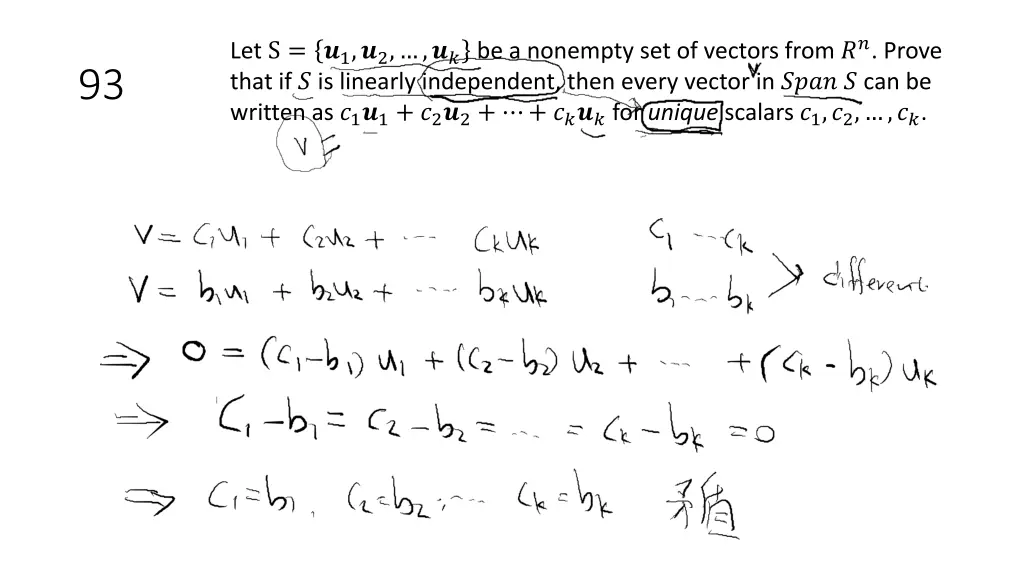 93
Let S = {𝒖₁, 𝒖₂, …, 𝒖ₖ} be a nonempty set of vectors from 𝑅ⁿ. Prove
that if 𝑆 is linearly independent, then every vector v in 𝑆𝑝𝑎𝑛 𝑆 can be
written as 𝑐₁𝒖₁ + 𝑐₂𝒖₂ + ⋯ + 𝑐ₖ𝒖ₖ for unique scalars 𝑐₁, 𝑐₂, … , 𝑐ₖ.
V =
V = C₁U₁ + C₂U₂ + ⋯ CₖUₖ C₁ ⋯ Cₖ
V = b₁U₁ + b₂U₂ + ⋯ bₖUₖ b₁ ⋯ bₖ different
⇒ 0 = (C₁-b₁) U₁ + (C₂-b₂) U₂ + ⋯ + (Cₖ-bₖ) Uₖ
⇒ C₁-b₁ = C₂-b₂ = ⋯ = Cₖ-bₖ = 0
⇒ C₁=b₁, C₂=b₂, ⋯ Cₖ=bₖ 矛盾